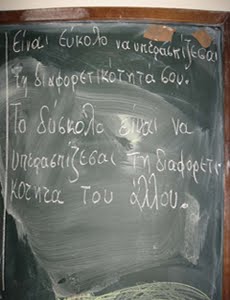 Είναι εύκολο να υπερασπίζεσαι
τη διαφορετικότητά σου.
Το δύσκολο είναι να
υπερασπίζεσαι τη διαφορετι-
κότητα του άλλου.